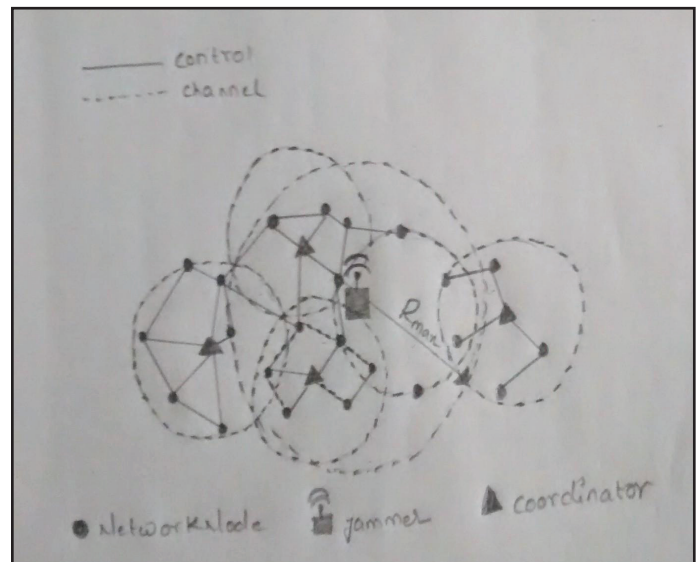 control
channel
Rmax
Network Node
jammer
coordinator